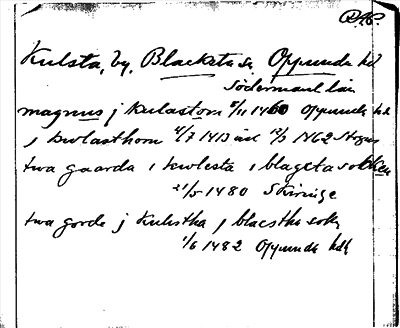 DAP.
Kulsta, by, Blacksta sn Oppunda hd
Södermanl län
magnus j kulastom 5/11 1460 Oppunda hd
j kwlasthom 4/7 1413 12/3 1462
twa gaarda i kwlesta i blagsta sokken
21/5 1480
twa gorde j Kulstha j blacstha sokn
1/6 1482 Oppunda hd